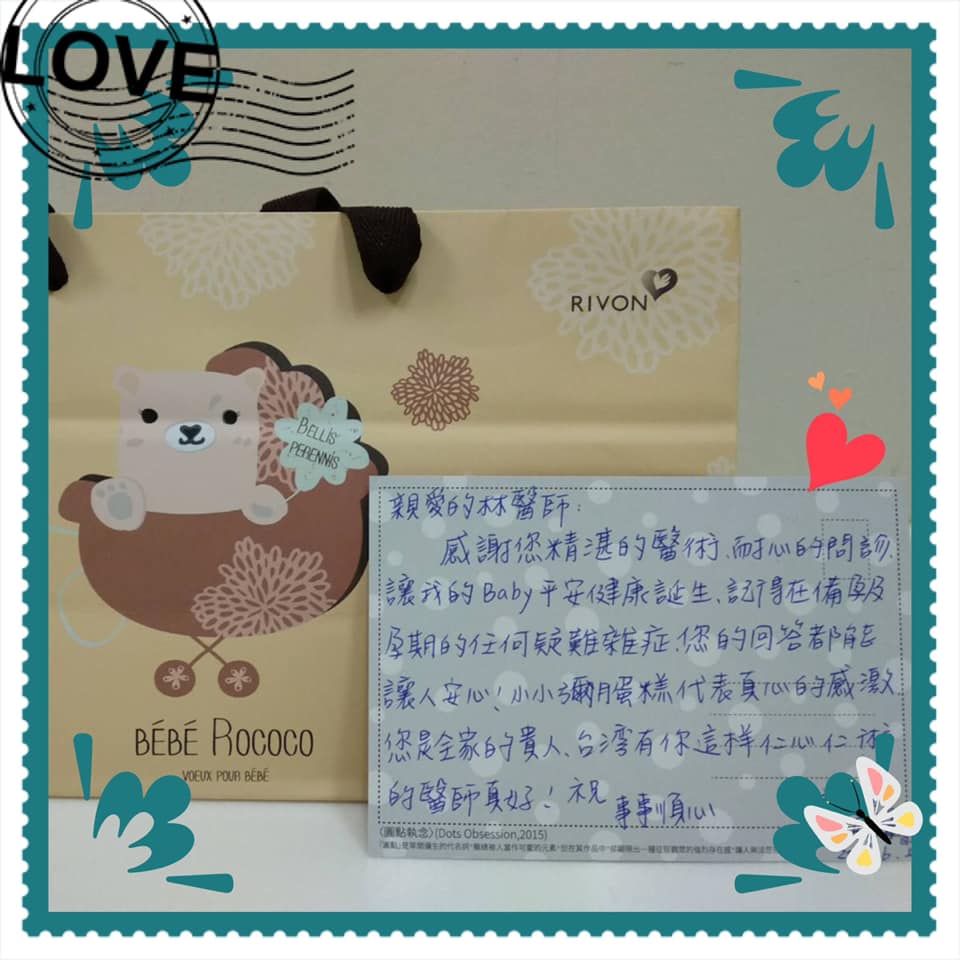 LOVE
RIVON
BELLIS
PERENNIS
BÉBÉ ROCOCO
VOEUX POUR BÉBÉ
親愛的林醫師:
感謝您精湛的醫術、耐心的問診、
讓我的Baby平安健康誕生、記得在備孕及
孕期的任何疑難雜症、您的回答都能
讓人安心!小小彌月蛋糕代表真心的感激
您是全家的貴人、台灣有你這样仁心仁術
的醫師真好!祝 事事順心
〈圓點執念〉(Dots Obsession,2015)